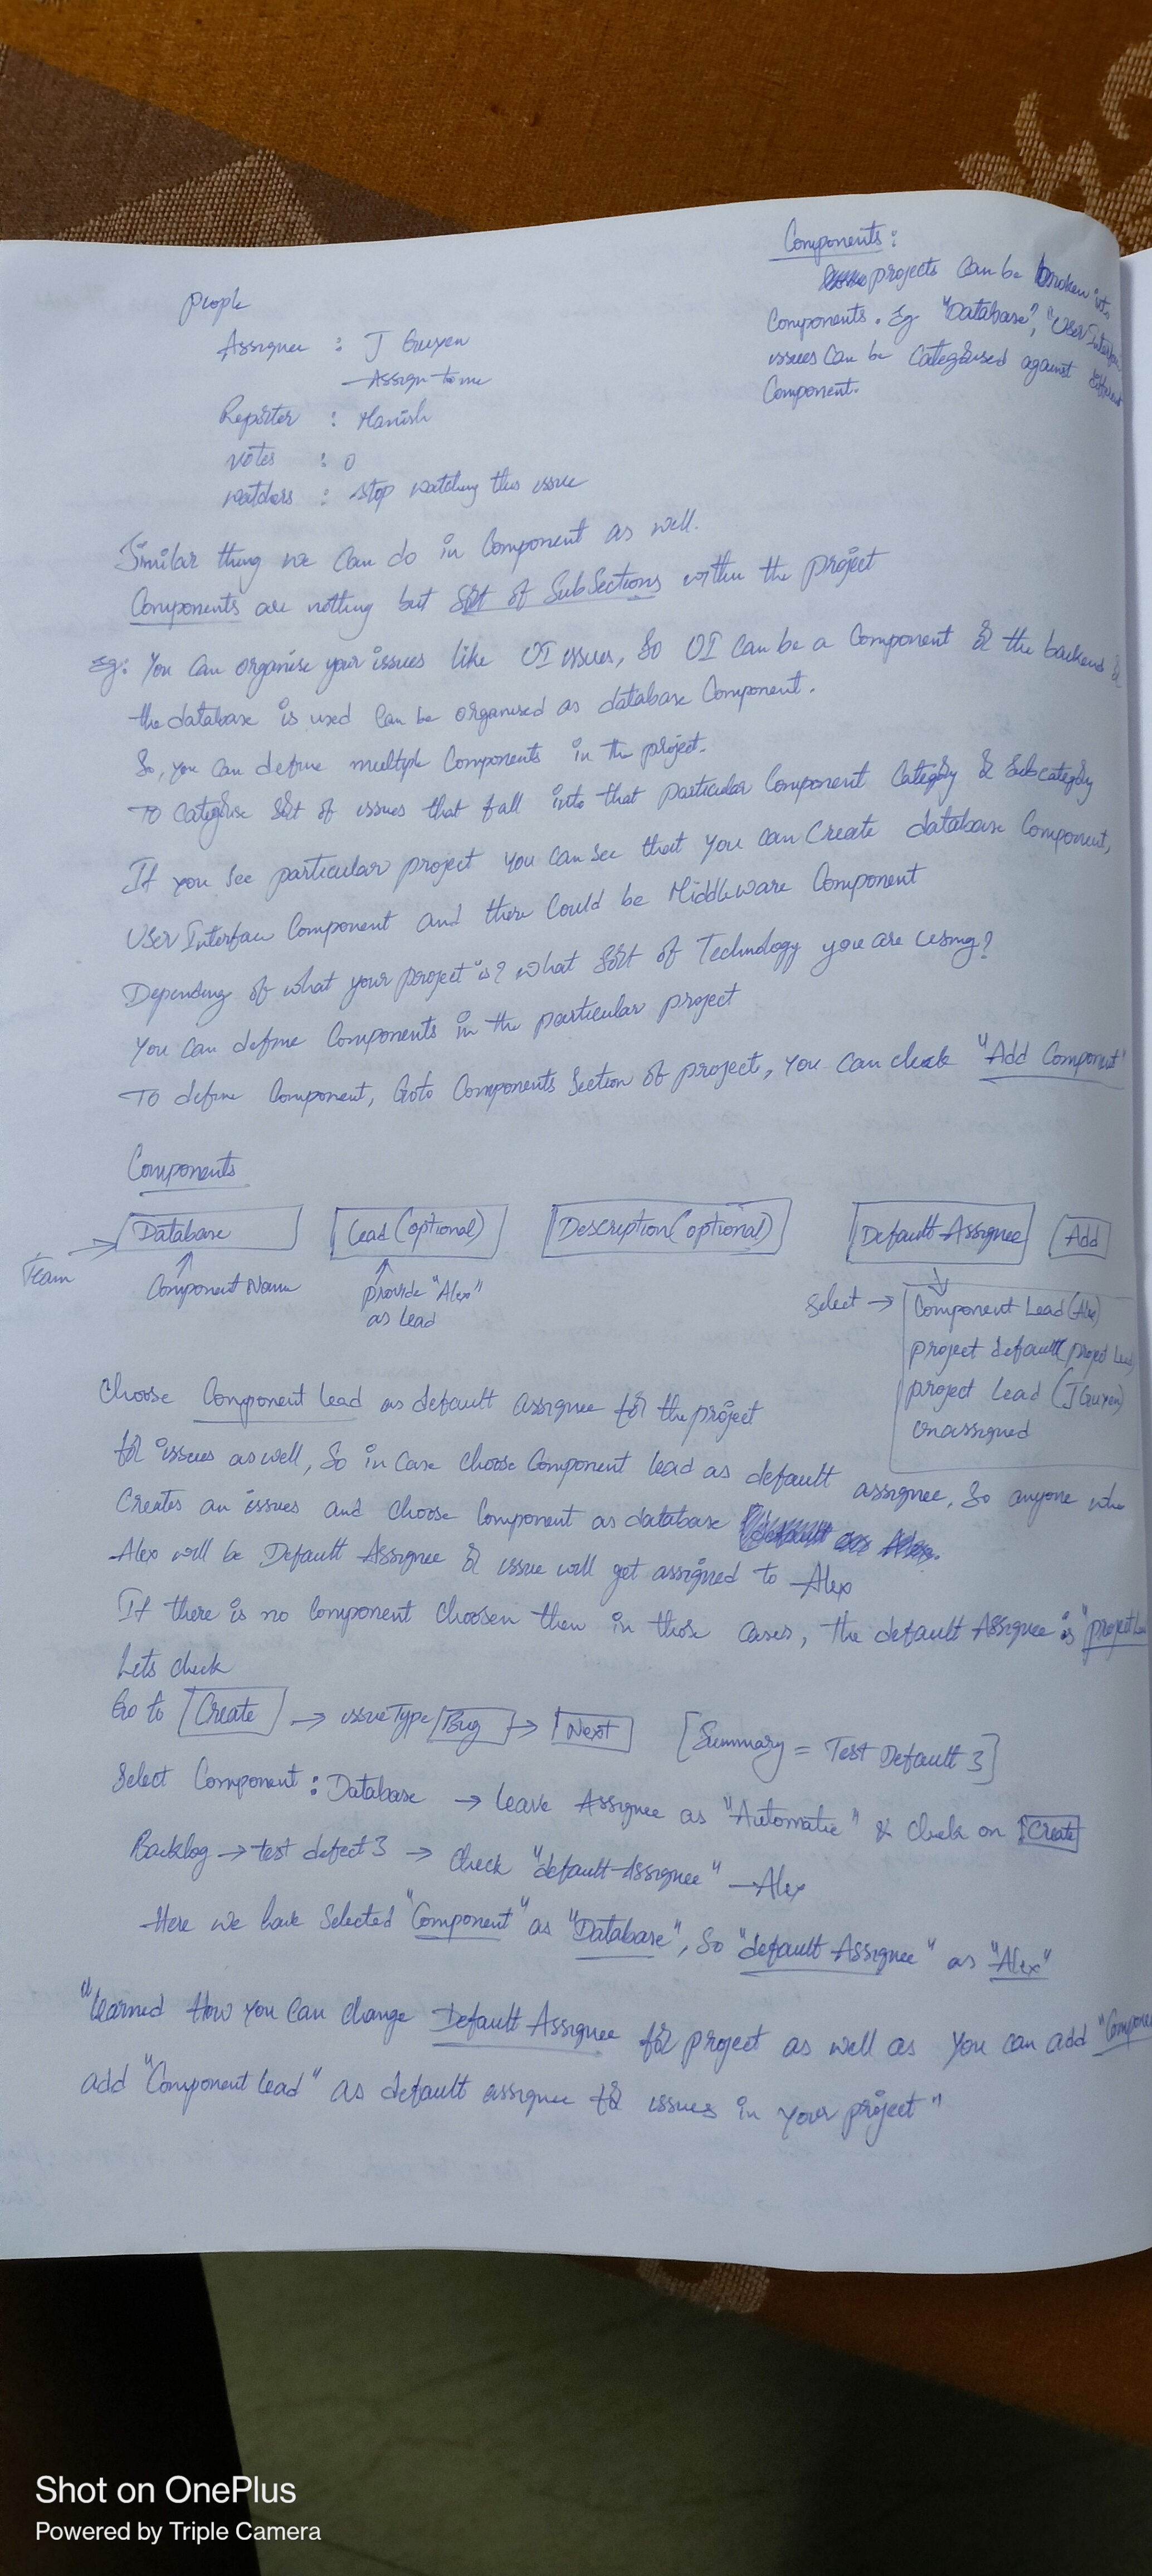 Components :
projects can be broken into
Components. Eg "Database", "User Interface
issues can be categorised against different
Component.
People
Assignee : J Guyen
Assign to me
Reporter : Manish
Votes : 0
watchers : stop watching this issue
Similar thing we can do in Component as well.
Components are nothing but Sort of SubSections within the project
Eg: You can organise your issues like UI issues, So UI can be a Component & the backend &
the database is used can be organised as database Component.
So, you can define multiple Components in the project.
To categorise sort of issues that fall into that particular Component Category & Subcategory
If you see particular project you can see that you can create database Component,
User Interface Component and there could be Middleware Component
Depending of what your project is? what sort of Technology you are using?
You can define Components in the particular project
To define Component, Goto Components Section of project, you can check "Add Component"
Components
Database Lead (optional) Description (optional) Default Assignee Add
Team
Component Name
provide "Alex"
as Lead
Select → Component Lead (Alex)
project default (project Lead)
project Lead (J Guyen)
Unassigned
Choose Component lead as default assignee for the project
for issues as well, So in case choose Component lead as default assignee, So anyone who
Creates an issues and choose Component as database
Alex will be Default Assignee & issue will get assigned to Alex
If there is no Component choosen then in those cases, the default Assignee is "project Lea
Lets check
Go to Create → issueType Bug → Next [Summary = Test Default 3]
Select Component : Database → leave Assignee as "Automatic" & check on Create
Backlog → test defect 3 → check "default Assignee" → Alex
Here we have Selected "Component" as "Database", So "default Assignee" as "Alex"
"learned How you can change Default Assignee for project as well as you can add "Compone
add "Component lead" as default assignee for issues in your project"
Shot on OnePlus
Powered by Triple Camera